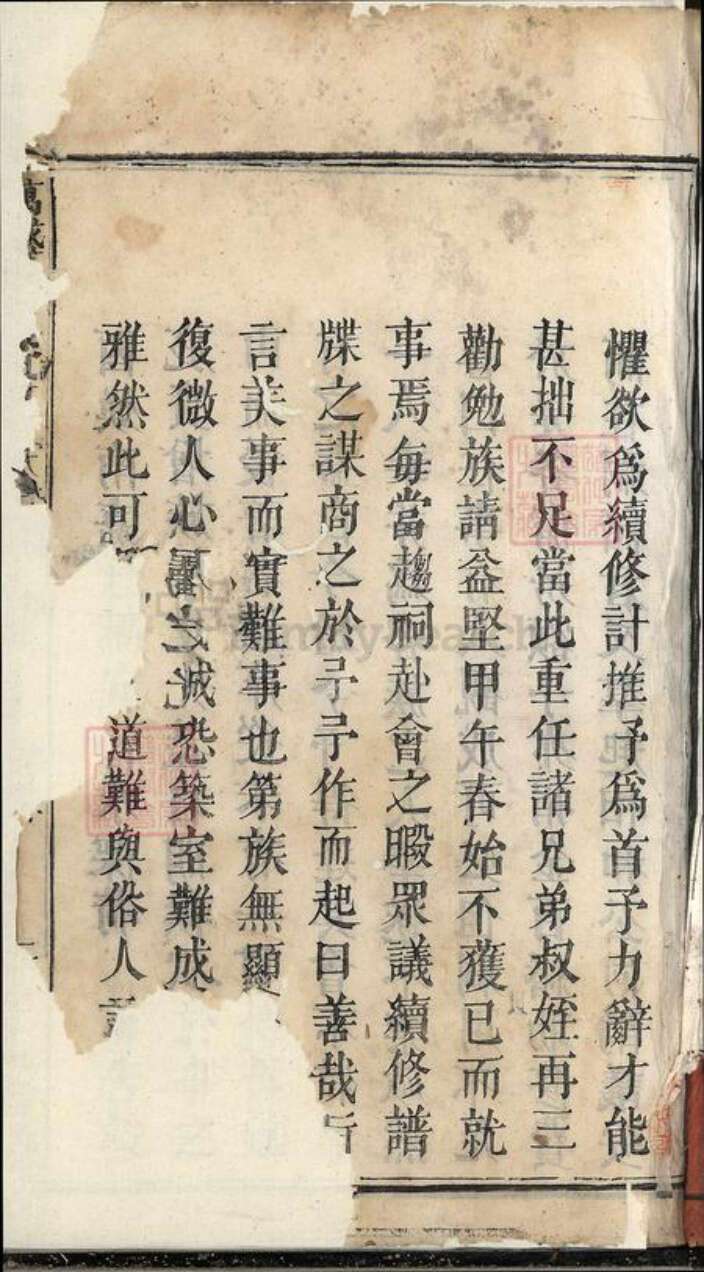 懼欲爲續修計推予爲首予力辭才能
甚拙不足當此重任諸兄弟叔姪再三
勸勉族請益堅甲午春始不獲已而就
事焉每當趨祠赴會之暇眾議續修譜
牒之謀商之於予予作而起曰善哉所
言美事而實難事也第族無顯
復微人心之誠恐築室難成
雅然此可道難與俗人言
萬